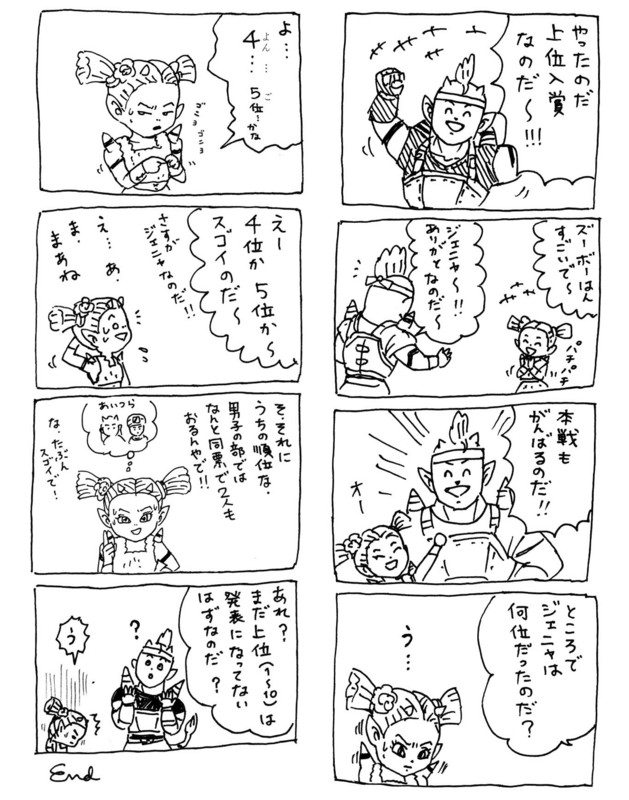 やったのだ
上位入賞
なのだ〜!!!
ズーボーはん
すごいで〜
パチパチ
ジェニャ〜!!
ありがとなのだ〜
本戦も
がんばるのだ!!
オー
ところで
ジェニャは
何位だったのだ?
う…
よ…
4…
よん…
5位!かな
ご
ゴニョ
ゴニョ
えー
4位か
5位か〜
スゴイのだ〜
さすが
ジェニャなのだ!!
え…あ.
ま.
まあね
そ.それに
うちの順位な.
男子の部では
なんと同票で2人も
おるんやで!!
あいつら
な.たぶん
スゴイで!
あれ?
まだ上位(1〜10)は
発表になってない
はずなのだ?
?
う
End